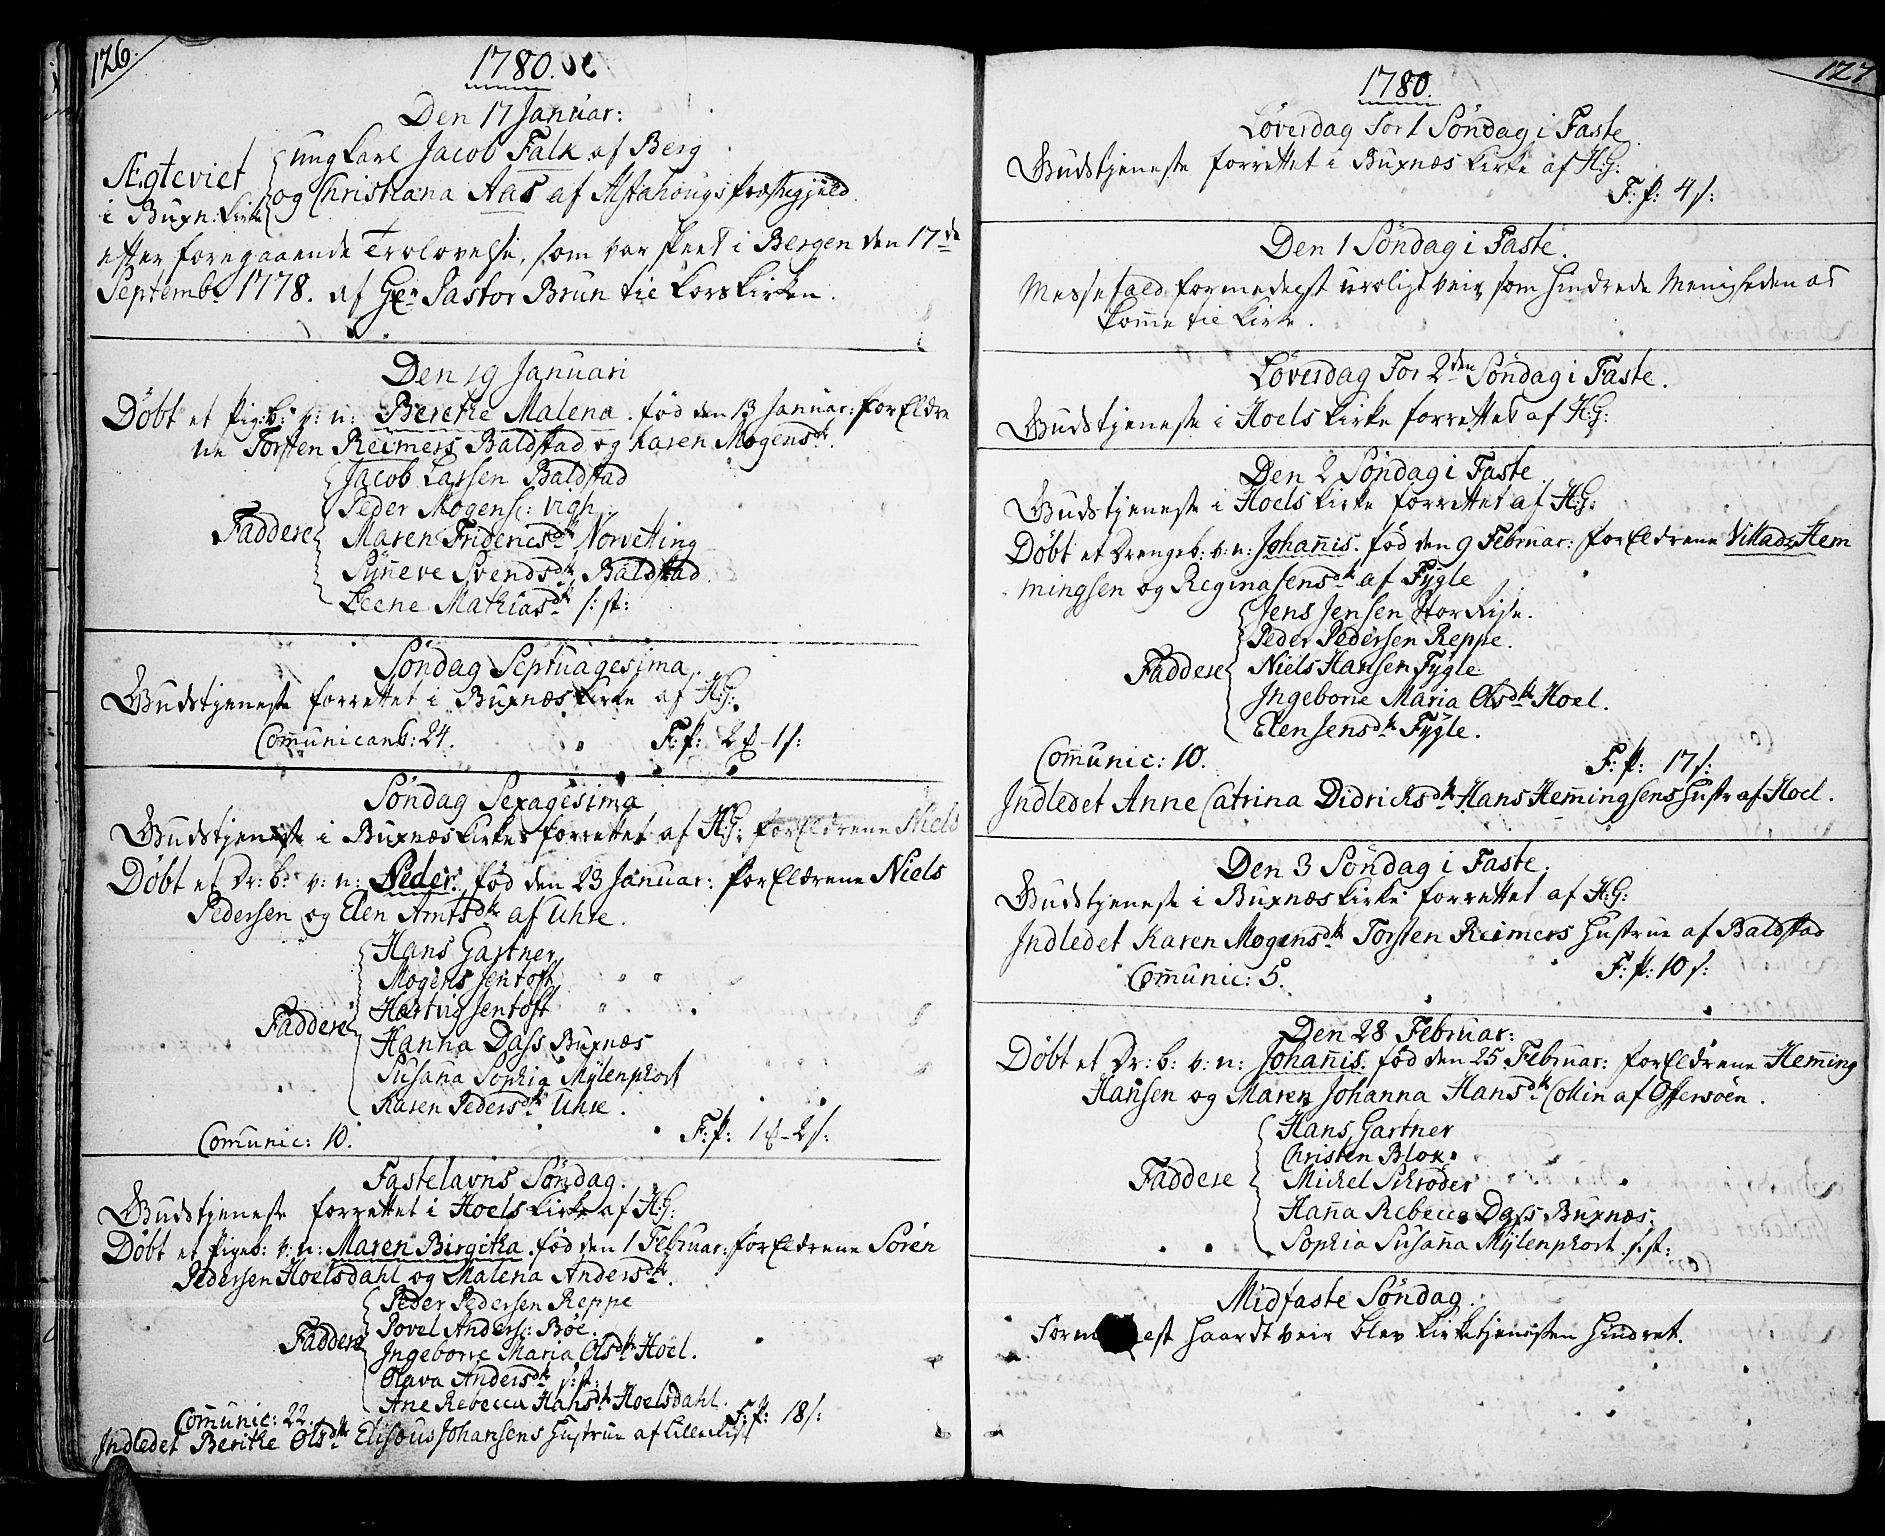 126.
1780.
Den 17 Januar:
Ægteviet i Buxn: kirke
ungkarl Jacob Falk af Berg
og Christiana Aas af Alstahougs præstegjæld.
efter foregaaende Trolovelse, som var skeet i Bergen den 17de
Septembr 1778. af Pastor Brun til Korskirken.
Den 19 Januari
Døbt et Pig: b: v: n: Berethe Malena. fød den 13 Januar: forEldre
ne Torsten Reimers Baldstad og Karen Mogensdtr.
Faddere
Jacob Larsen Baldstad
Peder Mogens: vigh.
Maren Friderichsdtr Norveting
Synneve Svendsdtr Baldstad
Leene Mathiasdtr s: st:
Søndag Septuagesima
Gudstjeneste forrettet i Buxnæs kirke af H:G:
Comunicant: 24. F: p: 2 ß - 1 s:
Søndag Sexagesima
Gudstjeneste i Buxnæs kirke forrettet af H:G: forEldrene Niels
Døbt et Dr: b: v: n: Peder. fød den 23 Januar: forEldrene Niels
Pedersen og Elen Amtsdtr af Uhre.
Faddere
Hans Gartner
Mogens Jentoft
Hartvig Jentoft
Hanna Dass Buxnæs
Susana Sophia Mylenphort
Karen Pedersdtr Uhre.
Comunic: 10. F: p: 1 ß - 2 s:
Fastelavns Søndag.
Gudstjeneste forrettet i Hoels kirke af H:G:
Døbt et Pigeb: v: n: Maren Birgitha. fød den 1 Februar: forEldrene Sören
Pedersen Hoelsdahl og Malena Andersdtr.
Faddere
Peder Pedersen Reppe
Povel Anders: Böe.
Ingeborre Maria Olsdtr Hoel.
Olava Andersdtr s: st:
Ane Rebecca Hansdtr Hoelsdahl.
Comunic: 22. F: p: 18 s:
Indledet Berithe Olsdtr Elisæus Johansens Hustrue af Lille Rise
127
1780.
Löverdag for 1 Söndag i Faste
Gudstjeneste forrettet i Buxnæs kirke af H:G:
F: p: 4 s:
Den 1 Söndag i Faste.
Messefald formedelst uroligt veir, som hindrede Menigheden at
komme til kirke.
Löverdag For 2den Söndag i Faste.
Gudstjeneste i Hoels kirke forrettet af H:G:
Den 2 Söndag i Faste
Gudstjeneste i Hoels kirke forrettet af H:G:
Døbt et Drengeb: v: n: Johannis. fød den 9 Februar: forEldrene Villads Hem
mingsen og Regina Jensdtr af Fygle
Faddere
Jens Jensen Stor Rise.
Peder Pedersen Reppe.
Niels Hansen Fygle
Ingeborre Maria Olsdtr Hoel.
Elen Jensdtr Fygle.
Comunic: 10. F: p: 17 s:
Indledet Anne Catrina Didricksdtr Hans Hemingsens Hustr af Hoel.
Den 3 Söndag i Faste.
Gudstjeneste i Buxnæs kirke forrettet af H:G:
Indledet Karen Mogensdtr Torsten Reimers Hustrue af Baldstad
Comunic: 5. F: p: 10 s:
Den 28 Februar:
Døbt et Dr: b: v: n: Johannis. fød den 25 Februar: forEldrene Heming
Hansen og Maren Johanna Hansdtr Collin af Offersöen.
Faddere
Hans Gartner
Christen Blox
Michel Schröder
Hanna Rebecca Dass Buxnæs
Sophia Susana Mylenphort s: st:
Midfaste Söndag.
Form est haardt veir blev kirketjenesten hindret.